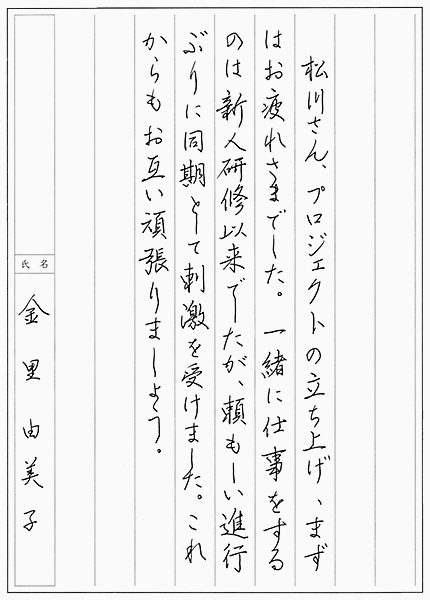 松川さん、プロジェクトの立ち上げ、まず
はお疲れさまでした。一緒に仕事をする
のは新人研修以来でしたが、頼もしい進行
ぶりに同期として刺激を受けました。これ
からもお互い頑張りましょう。
氏名
金里由美子